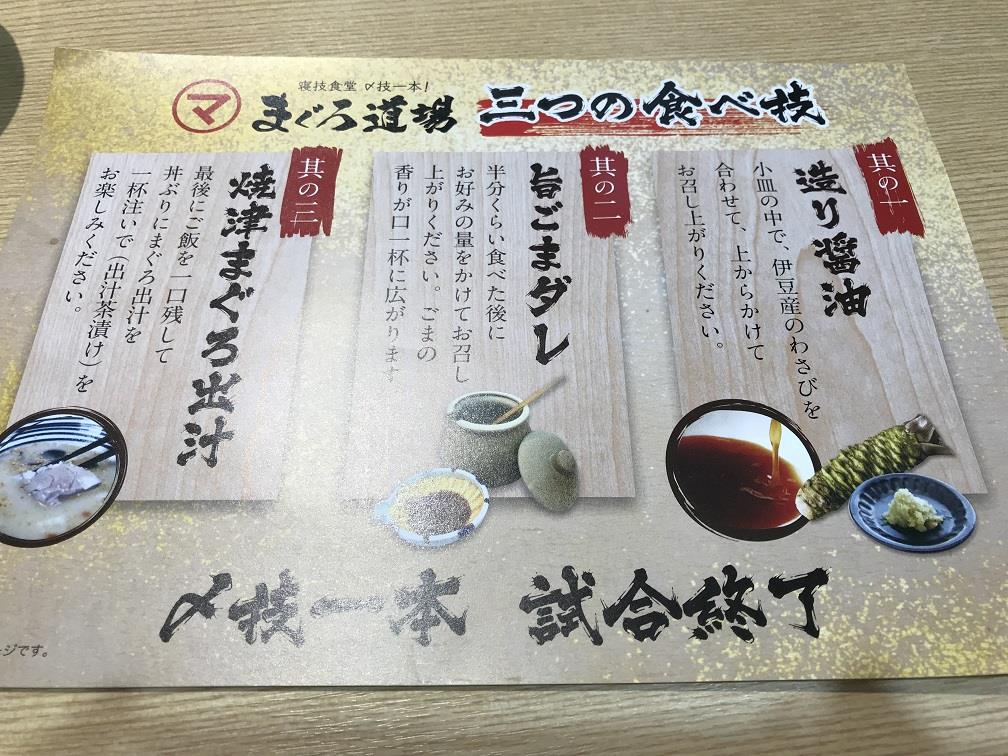 寝技食堂 〆技一本!
マ
まぐろ道場 三つの食べ技
其の一
造り醤油
小皿の中で、伊豆産のわさびを
合わせて、上からかけて
お召し上がりください。
其の二
旨ごまダレ
半分くらい食べた後に
お好みの量をかけてお召し
上がりください。ごまの
香りが口一杯に広がります
其の三
焼津まぐろ出汁
最後にご飯を一口残して
丼ぶりにまぐろ出汁を
一杯注いで(出汁茶漬け)を
お楽しみください。
〆技一本 試合終了
ージです。